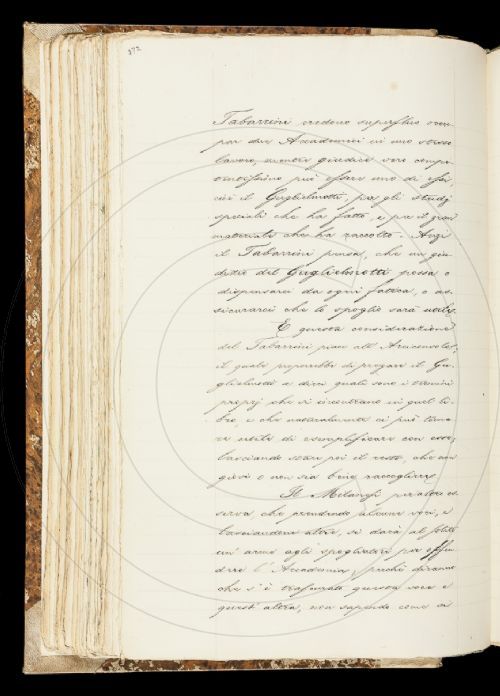 372
Tabarrini credono superfluo occu-
par due Accademici in uno stesso
lavoro, mentre giudice vero compe-
tentissimo può essere uno di essi,
cioè il Guglielmotti, per gli studj
speciali che ha fatto, e per il gran
materiale che ha raccolto. Anzi
il Tabarrini pensa, che un giu-
dizio del Guglielmotti possa o
dispensarci da ogni fatica, o as-
sicurarci che lo spoglio sarà utile.
E questa considerazione
del Tabarrini piace all'Arciconsolo,
il quale proporrebbe di pregare il Gu-
glielmotti a dirci quali sono i termini
proprj che si incontrano in quel li-
bro, e che naturalmente ci può torna-
re utile di esemplificare con esso,
lasciando stare poi il resto, che non
giova o non sia bene raccogliere.
Il Milanesi per altro os-
serva che prendendo alcune voci, e
lasciandone altre, si darà al solito
un'arme agli spogliatori per offen-
dere l'Accademia, perchè diranno
che s'è trascurata questa voce e
quest'altra, non sapendo come ci